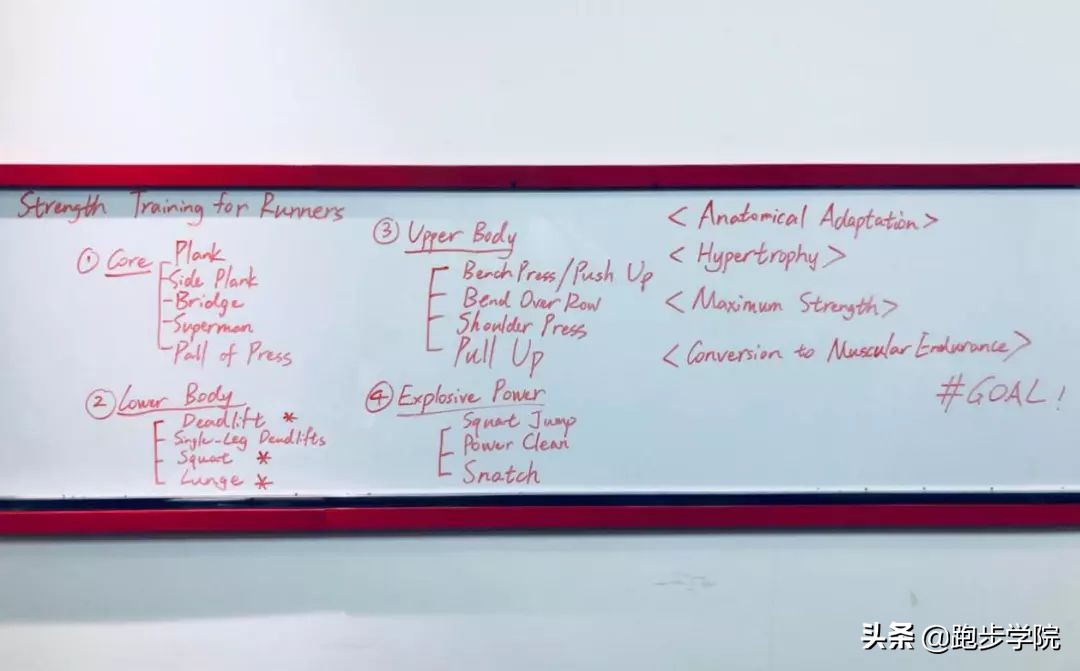 Strength Training for Runners
① Core
Plank
Side Plank
Bridge
Superman
Pall of Press
② Lower Body
Deadlift *
Single-Leg Deadlifts
Squat *
Lunge *
③ Upper Body
Bench Press/Push Up
Bend Over Row
Shoulder Press
Pull Up
④ Explosive Power
Squat Jump
Power Clean
Snatch
< Anatomical Adaptation >
< Hypertrophy >
< Maximum Strength >
< Conversion to Muscular Endurance >
#GOAL!
头条 @跑步学院